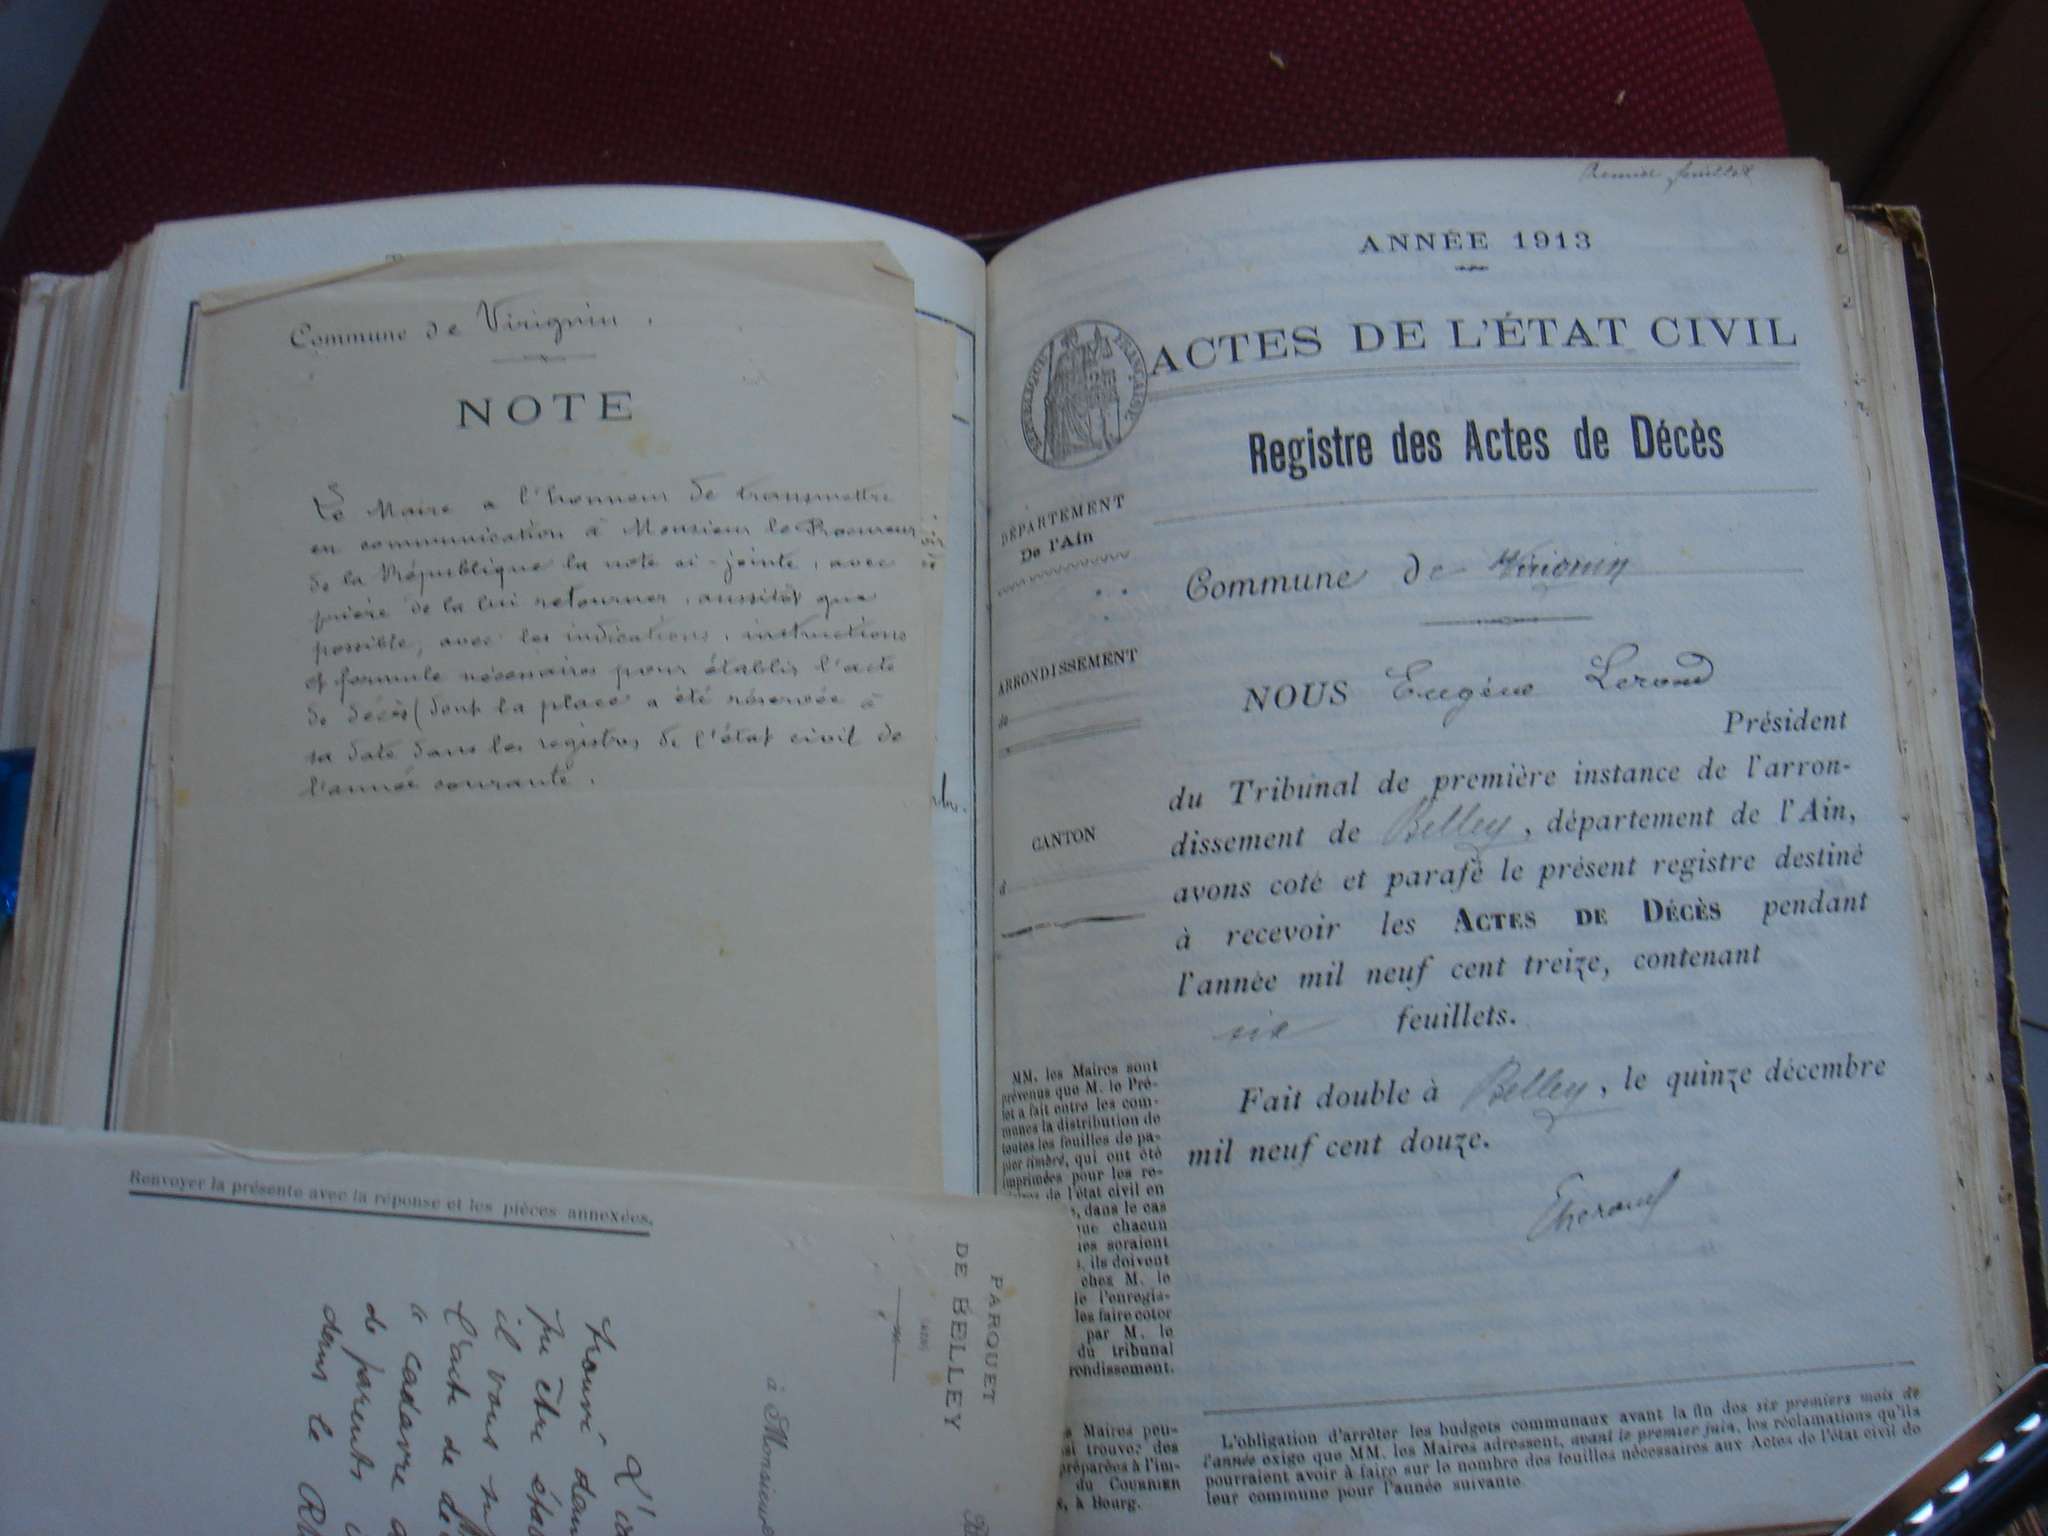 Commune de Virignin.
NOTE
Le Maire a l'honneur de transmettre
en communication à Monsieur le Procureur
de la République la note ci-jointe, avec
prière de la lui retourner, aussitôt que
possible, avec les indications, instructions
et formule nécessaires pour établir l'acte
de décès (dont la place a été réservée à
sa date dans les registres de l'état civil de
l'année courante.
Renvoyer la présente avec la réponse et les pièces annexées.
PARQUET
DE BELLEY
à Monsieur
trouvé dan
pu être étab
il vous
l'acte de dé
à cadavre
de parents
dans le
Premier feuillet
ANNÉE 1913
ACTES DE L'ÉTAT CIVIL
RÉPUBLIQUE FRANÇAISE
Registre des Actes de Décès
DÉPARTEMENT
De l'Ain
Commune de Virignin
ARRONDISSEMENT
de
CANTON
d
NOUS Eugène Lerond
Président
du Tribunal de première instance de l'arron-
dissement de Belley, département de l'Ain,
avons coté et parafé le présent registre destiné
à recevoir les ACTES DE DÉCÈS pendant
l'année mil neuf cent treize, contenant
six feuillets.
Fait double à Belley, le quinze décembre
mil neuf cent douze.
MM. les Maires sont
prévenus que M. le Pré-
fet a fait entre les com-
munes la distribution de
toutes les feuilles de pa-
pier timbré, qui ont été
imprimées pour les re-
de l'état civil en
, dans le cas
que chacun
soraient
, ils doivent
chez M. le
l'enregis-
les faire coter
par M. le
du tribunal
rondissement.
Maires peu-
trouver des
préparées à l'im-
du COURRIER
, à Bourg.
L'obligation d'arrêter les budgets communaux avant la fin des six premiers mois de
l'année exige que MM. les Maires adressent, avant le premier juin, les réclamations qu'ils
pourraient avoir à faire sur le nombre des feuilles nécessaires aux Actes de l'état civil de
leur commune pour l'année suivante.